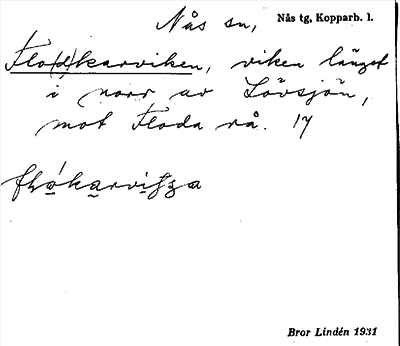 Nås sn, Nås tg, Kopparb. l.
Flo(d)karviken, viken längst
i norr av Lövsjön,
mot Floda rå. 17
Bror Lindén 1931